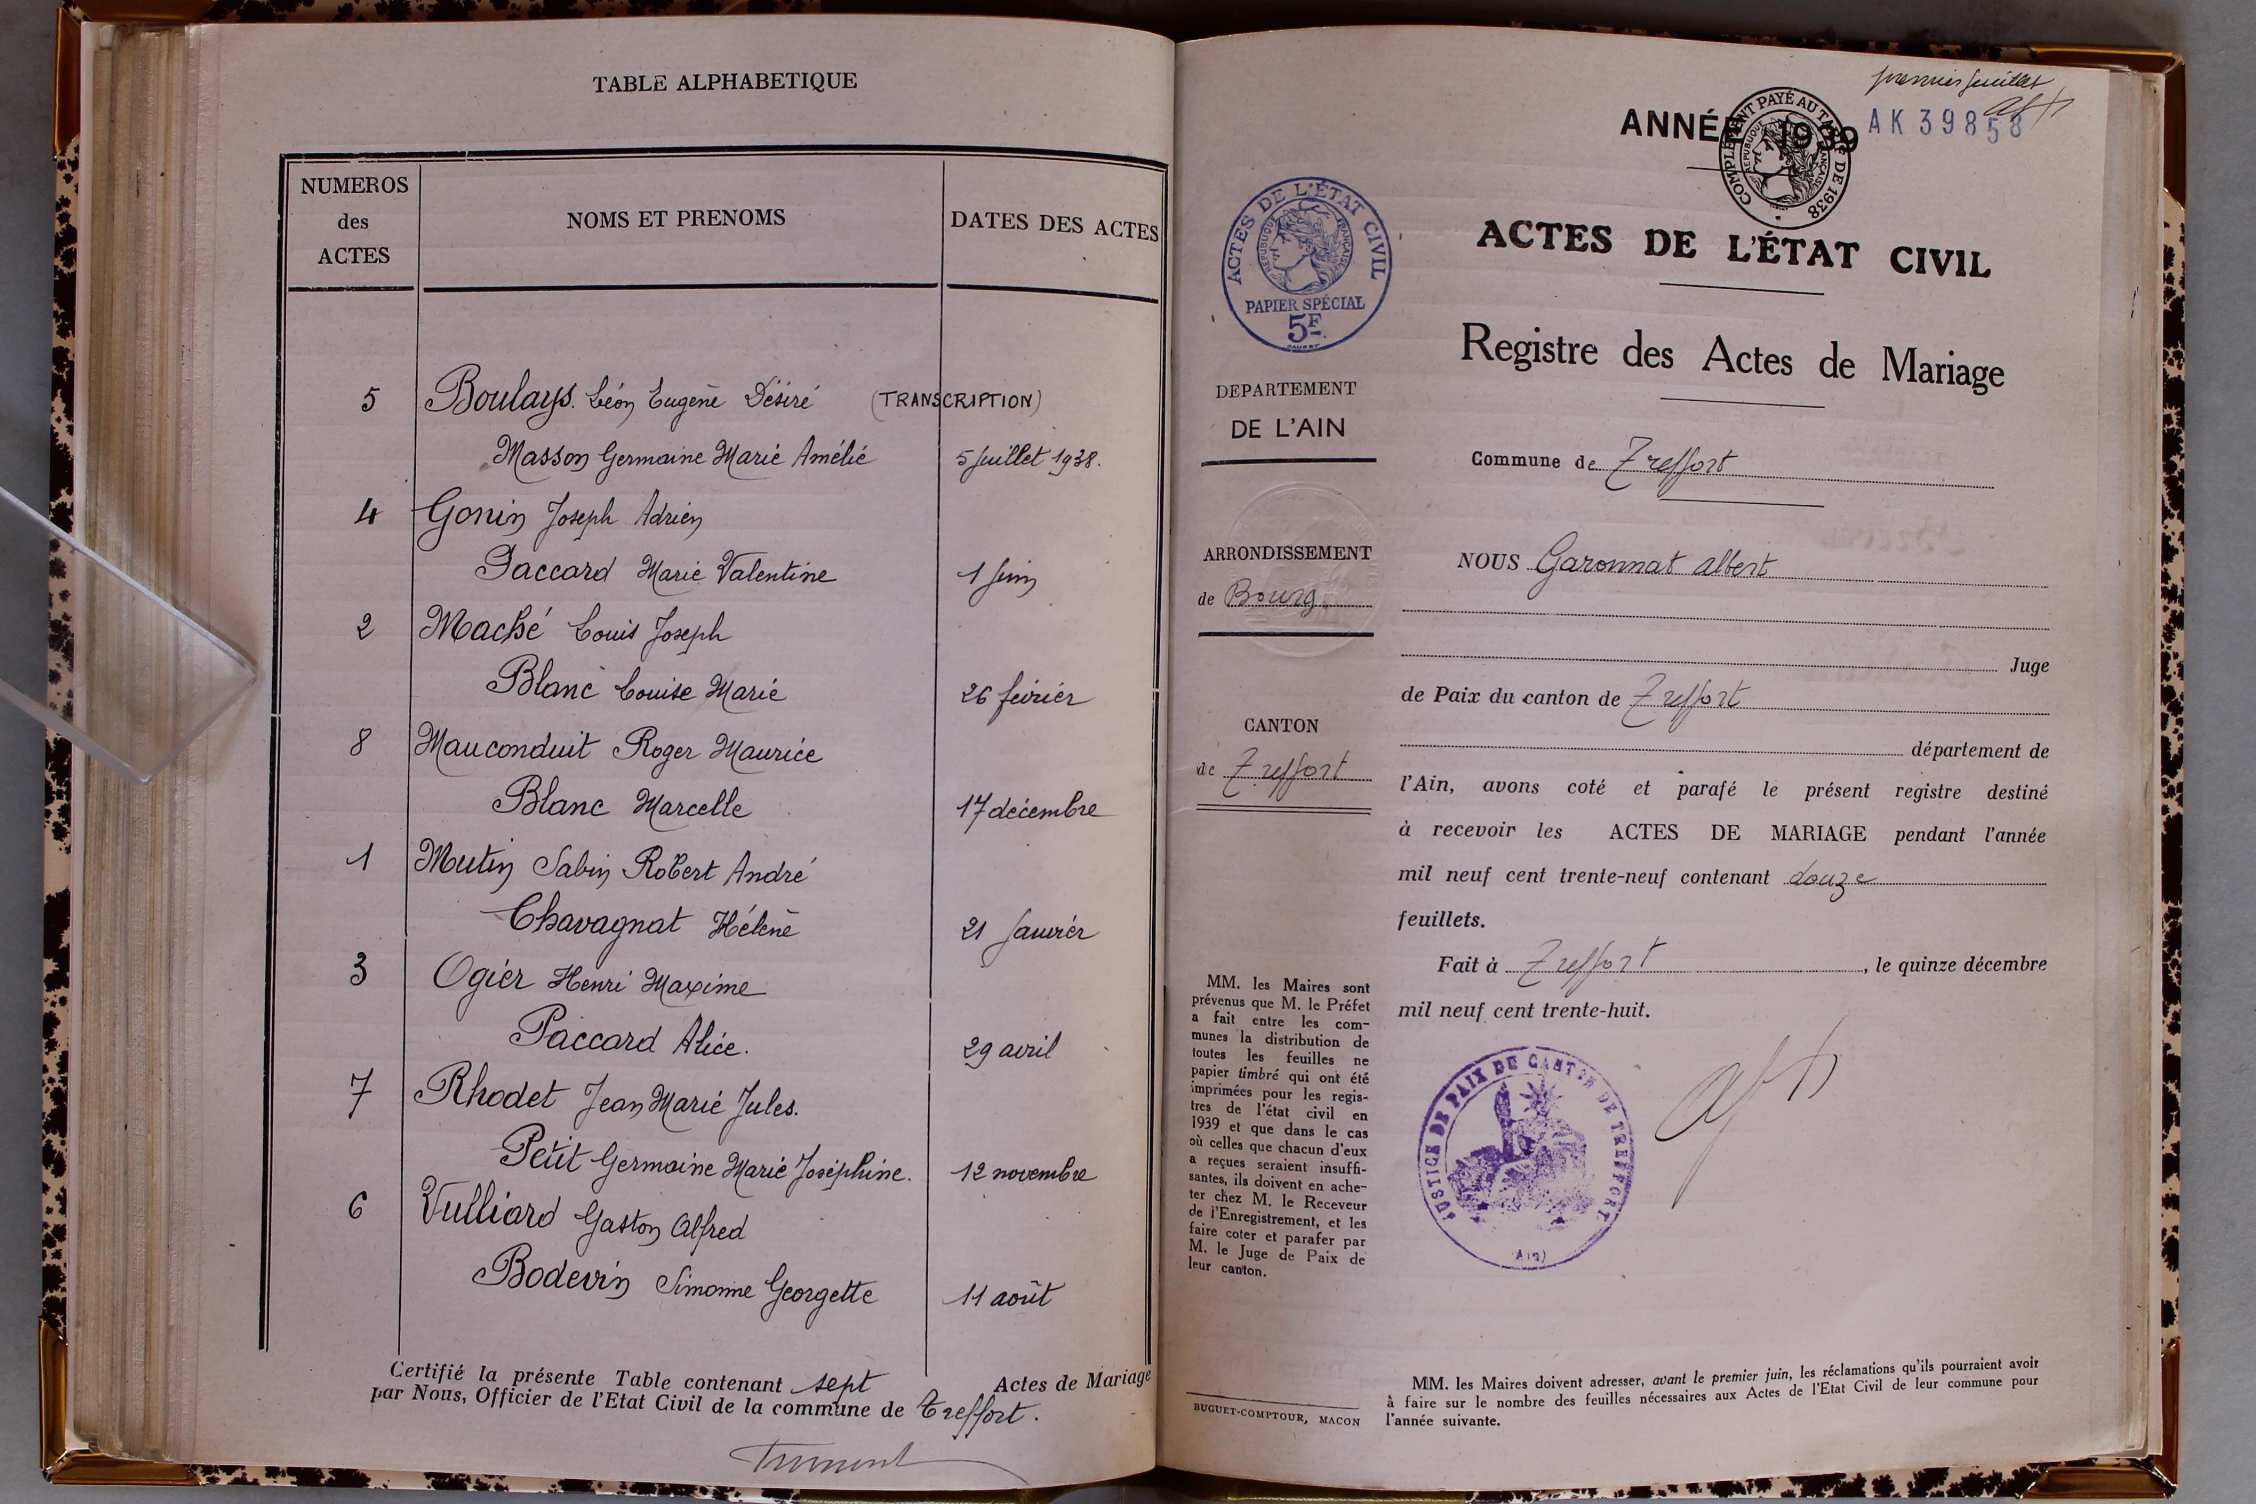 TABLE ALPHABETIQUE
NUMEROS
des
ACTES
NOMS ET PRENOMS
DATES DES ACTES
5 Boulays. Léon Eugène Désiré (TRANSCRIPTION)
Masson Germaine Marie Amélie 5 Juillet 1938.
4 Gonin Joseph Adrien
Paccard Marie Valentine 1 Juin
2 Maché Louis Joseph
Blanc Louise Marie 26 février
8 Mauconduit Roger Maurice
Blanc Marcelle 17 décembre
1 Mutin Sabin Robert André
Chavagnat Hélène 21 Janvier
3 Ogier Henri Maxime
Paccard Alice. 29 avril
7 Rhodet Jean Marie Jules.
Petit Germaine Marie Joséphine. 12 novembre
6 Vulliard Gaston Alfred
Bodevin Simonne Georgette 11 août
Certifié la présente Table contenant sept Actes de Mariage
par Nous, Officier de l'Etat Civil de la commune de Treffort.
premier feuillet
ANNÉE 1939
AK 39858
COMPLÉMENT PAYÉ AU TARIF DE 1938
REPUBLIQUE FRANÇAISE
ACTES DE L'ÉTAT CIVIL
REPUBLIQUE FRANÇAISE
PAPIER SPÉCIAL
5F
DEPARTEMENT
DE L'AIN
ARRONDISSEMENT
de Bourg
CANTON
de Treffort
MM. les Maires sont
prévenus que M. le Préfet
a fait entre les com-
munes la distribution de
toutes les feuilles ne
papier timbré qui ont été
imprimées pour les regis-
tres de l'état civil en
1939 et que dans le cas
où celles que chacun d'eux
a reçues seraient insuffi-
santes, ils doivent en ache-
ter chez M. le Receveur
de l'Enregistrement, et les
faire coter et parafer par
M. le Juge de Paix de
leur canton.
BUGUET-COMPTOUR, MACON
ACTES DE L'ÉTAT CIVIL
Registre des Actes de Mariage
Commune de Treffort
NOUS Garonnat Albert
Juge
de Paix du canton de Treffort
département de
l'Ain, avons coté et parafé le présent registre destiné
à recevoir les ACTES DE MARIAGE pendant l'année
mil neuf cent trente-neuf contenant douze
feuillets.
Fait à Treffort, le quinze décembre
mil neuf cent trente-huit.
JUSTICE DE PAIX DE CANTON DE TREFFORT
(Ain)
MM. les Maires doivent adresser, avant le premier juin, les réclamations qu'ils pourraient avoir
à faire sur le nombre des feuilles nécessaires aux Actes de l'Etat Civil de leur commune pour
l'année suivante.